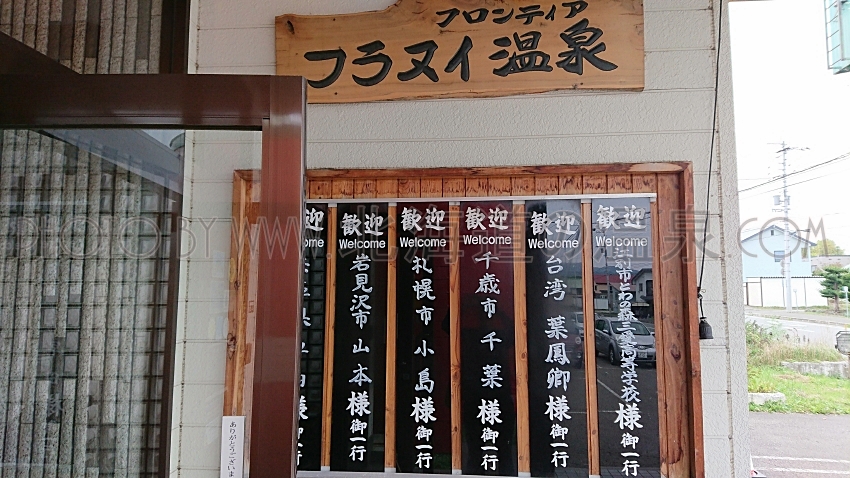 フロンティア
フラヌイ温泉
歓迎
Welcome
市とわの森三愛高等学校様御一行
歓迎
Welcome
台湾 葉鳳卿様御一行
歓迎
Welcome
千歳市 千葉様御一行
歓迎
Welcome
札幌市 小島様御一行
歓迎
Welcome
岩見沢市 山本様御一行
迎
様御一行
ありがとうございま
PHOTO BY WWW.北海道の温泉.COM